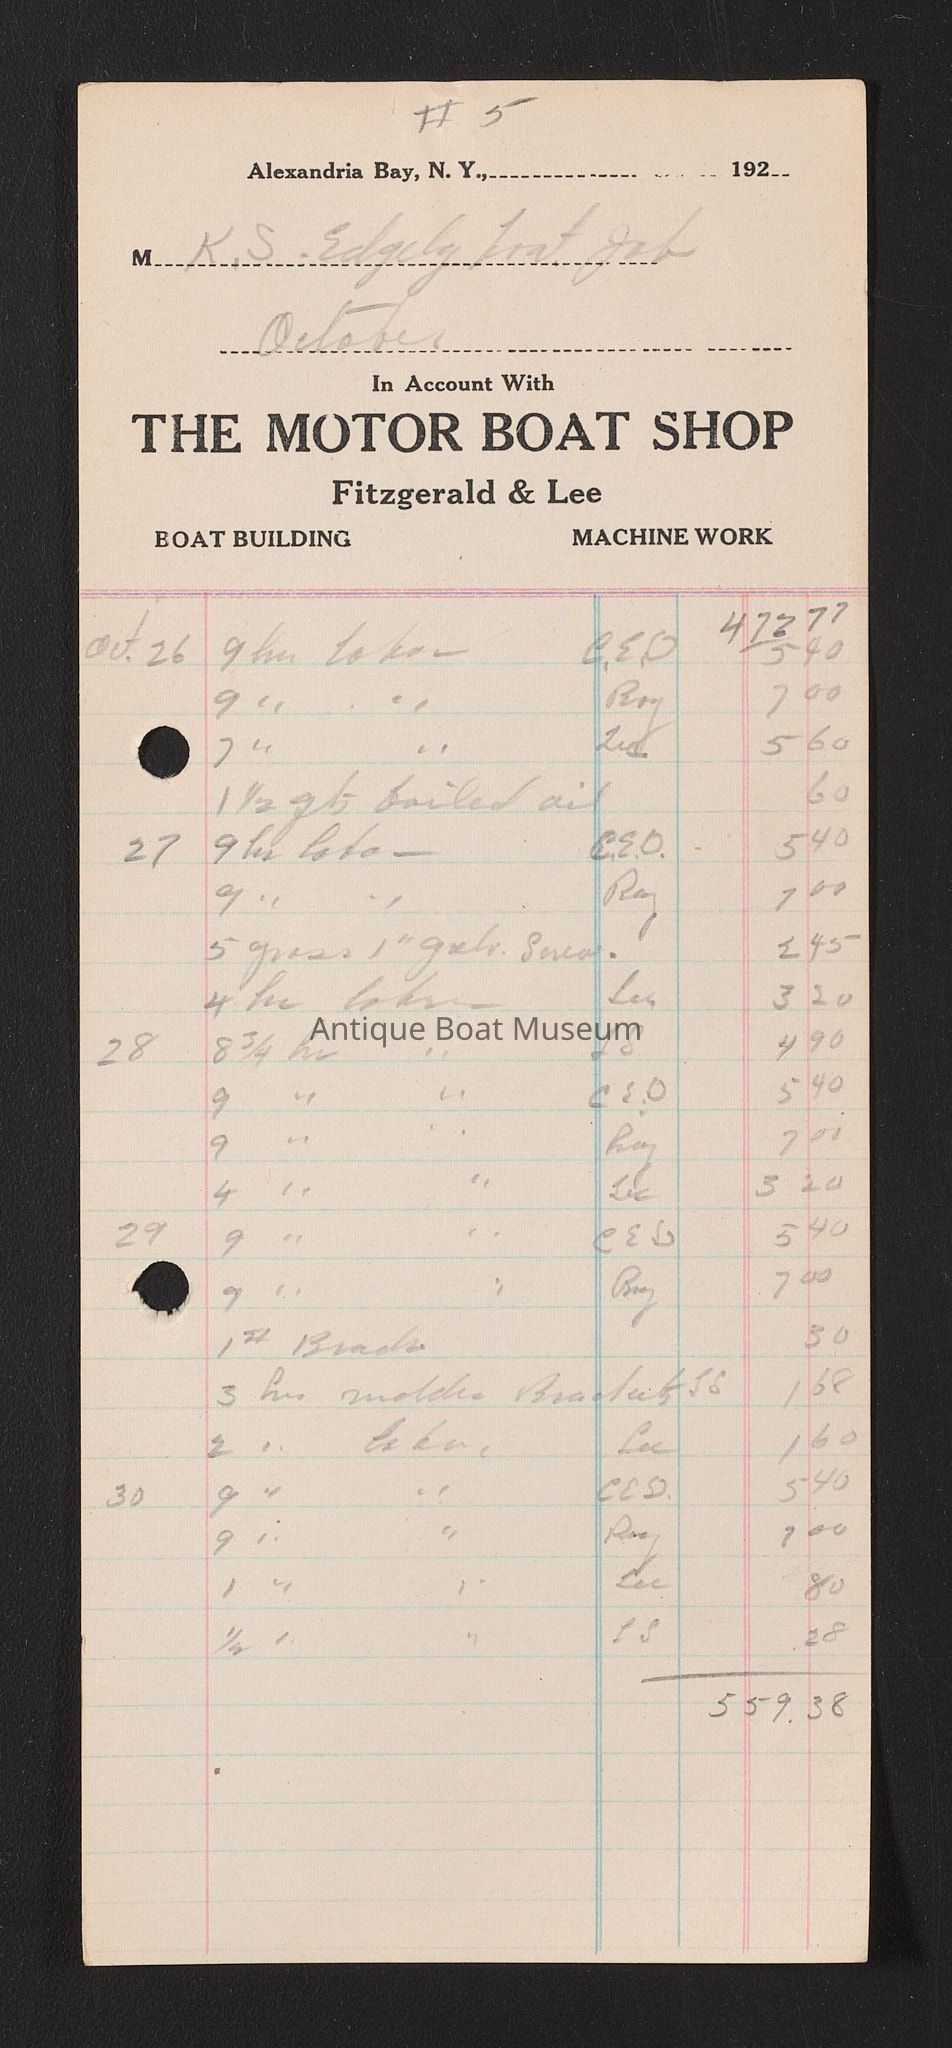 # 5
Alexandria Bay, N. Y., 192
M K. S. Edgely boat Job
October
In Account With
THE MOTOR BOAT SHOP
Fitzgerald & Lee
BOAT BUILDING MACHINE WORK
472 77
Oct. 26 9 hrs labor C.E.D 5 40
9 " " Roy 7 00
7 " " Lee 5 60
1 1/2 qts boiled oil 60
27 9 hr labor C.E.D. 5 40
9 " " Roy 7 00
5 gross 1" galv. Screws. 2 45
4 hr labor Lee 3 20
Antique Boat Museum
28 8 3/4 hr " 4 90
9 " " C E D 5 40
9 " " Roy 7 00
4 " " Lee 3 20
29 9 " " C E D 5 40
9 " " Roy 7 00
1 # Brads 30
3 hrs Brackets 1 68
2 " labor, Lee 1 60
30 9 " " C E D. 5 40
9 " " Roy 7 00
1 " " Lee 80
1/2 " " 28
559.38